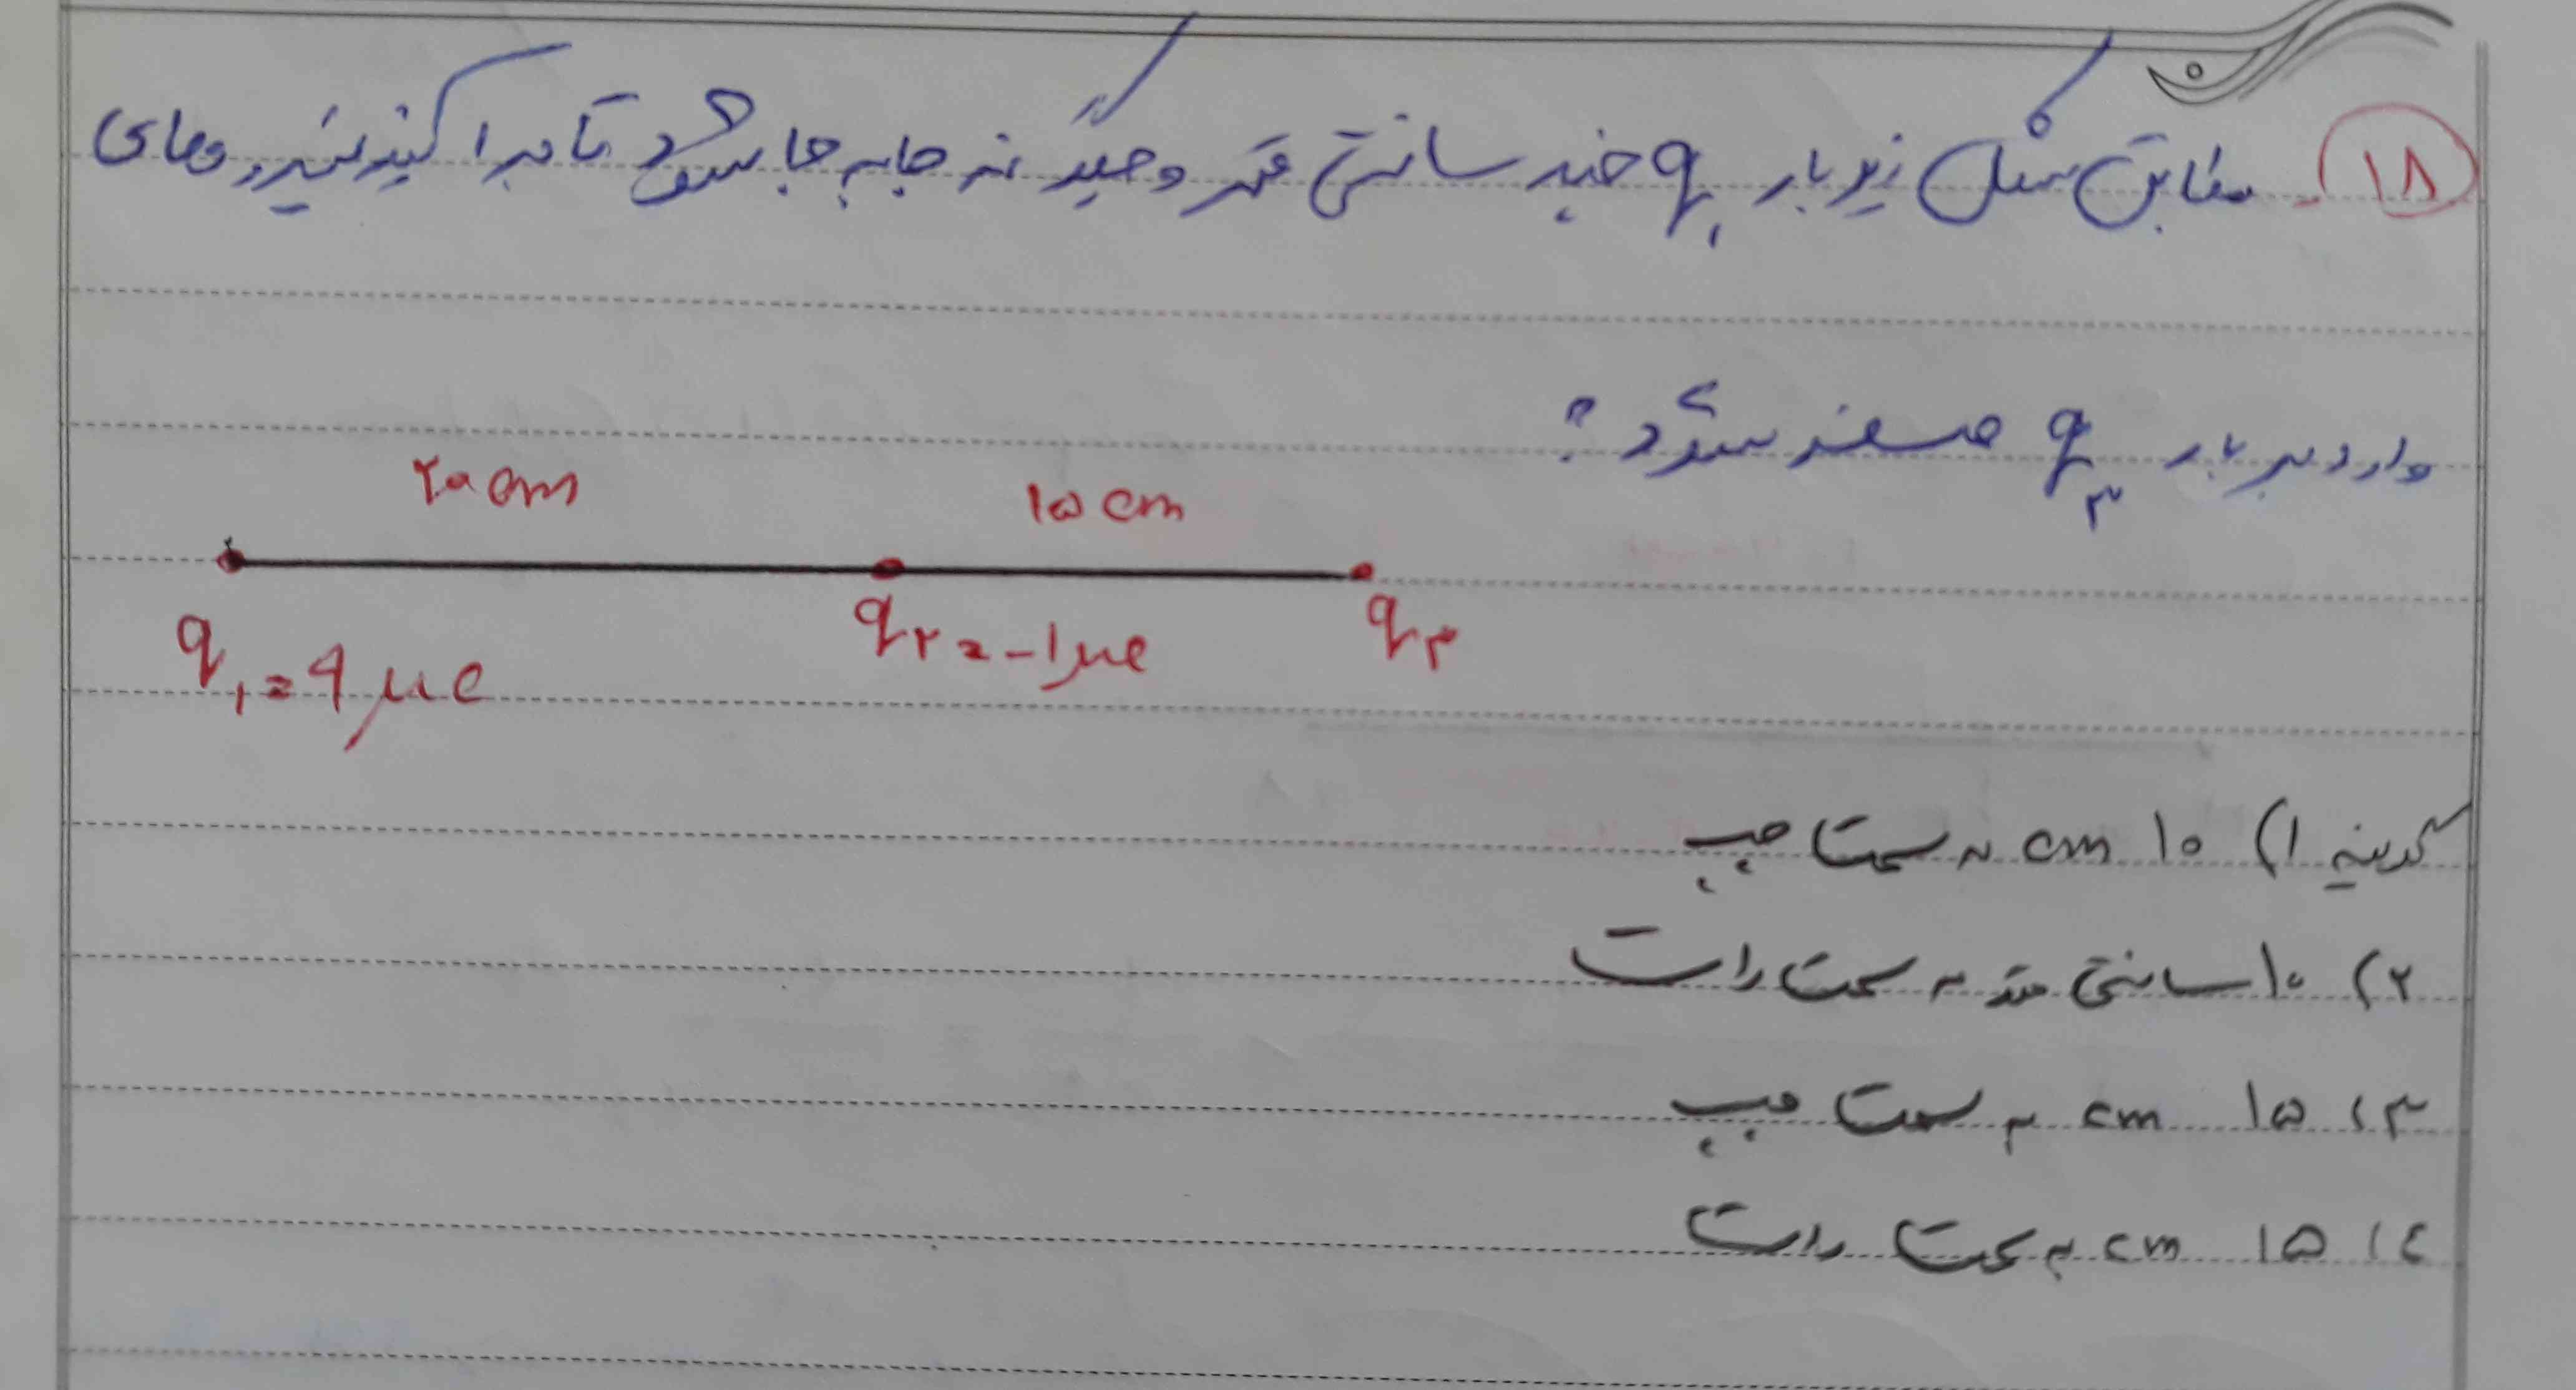 ۱۸ - مطابق شکل زیر بار q۱ چند سانتی متر و چگونه جابه جا شود تا برآیند نیروهای
وارد بر بار q۳ صفر شود؟
۲۰ cm ۱۵ cm
q۱ = ۹ μc q۲ = -۱ μc q۳
گزینه ۱) ۱۰ cm به سمت چپ
۲) ۱۰ سانتی متر به سمت راست
۳) ۱۵ cm به سمت چپ
٤) ۱۵ cm به سمت راست